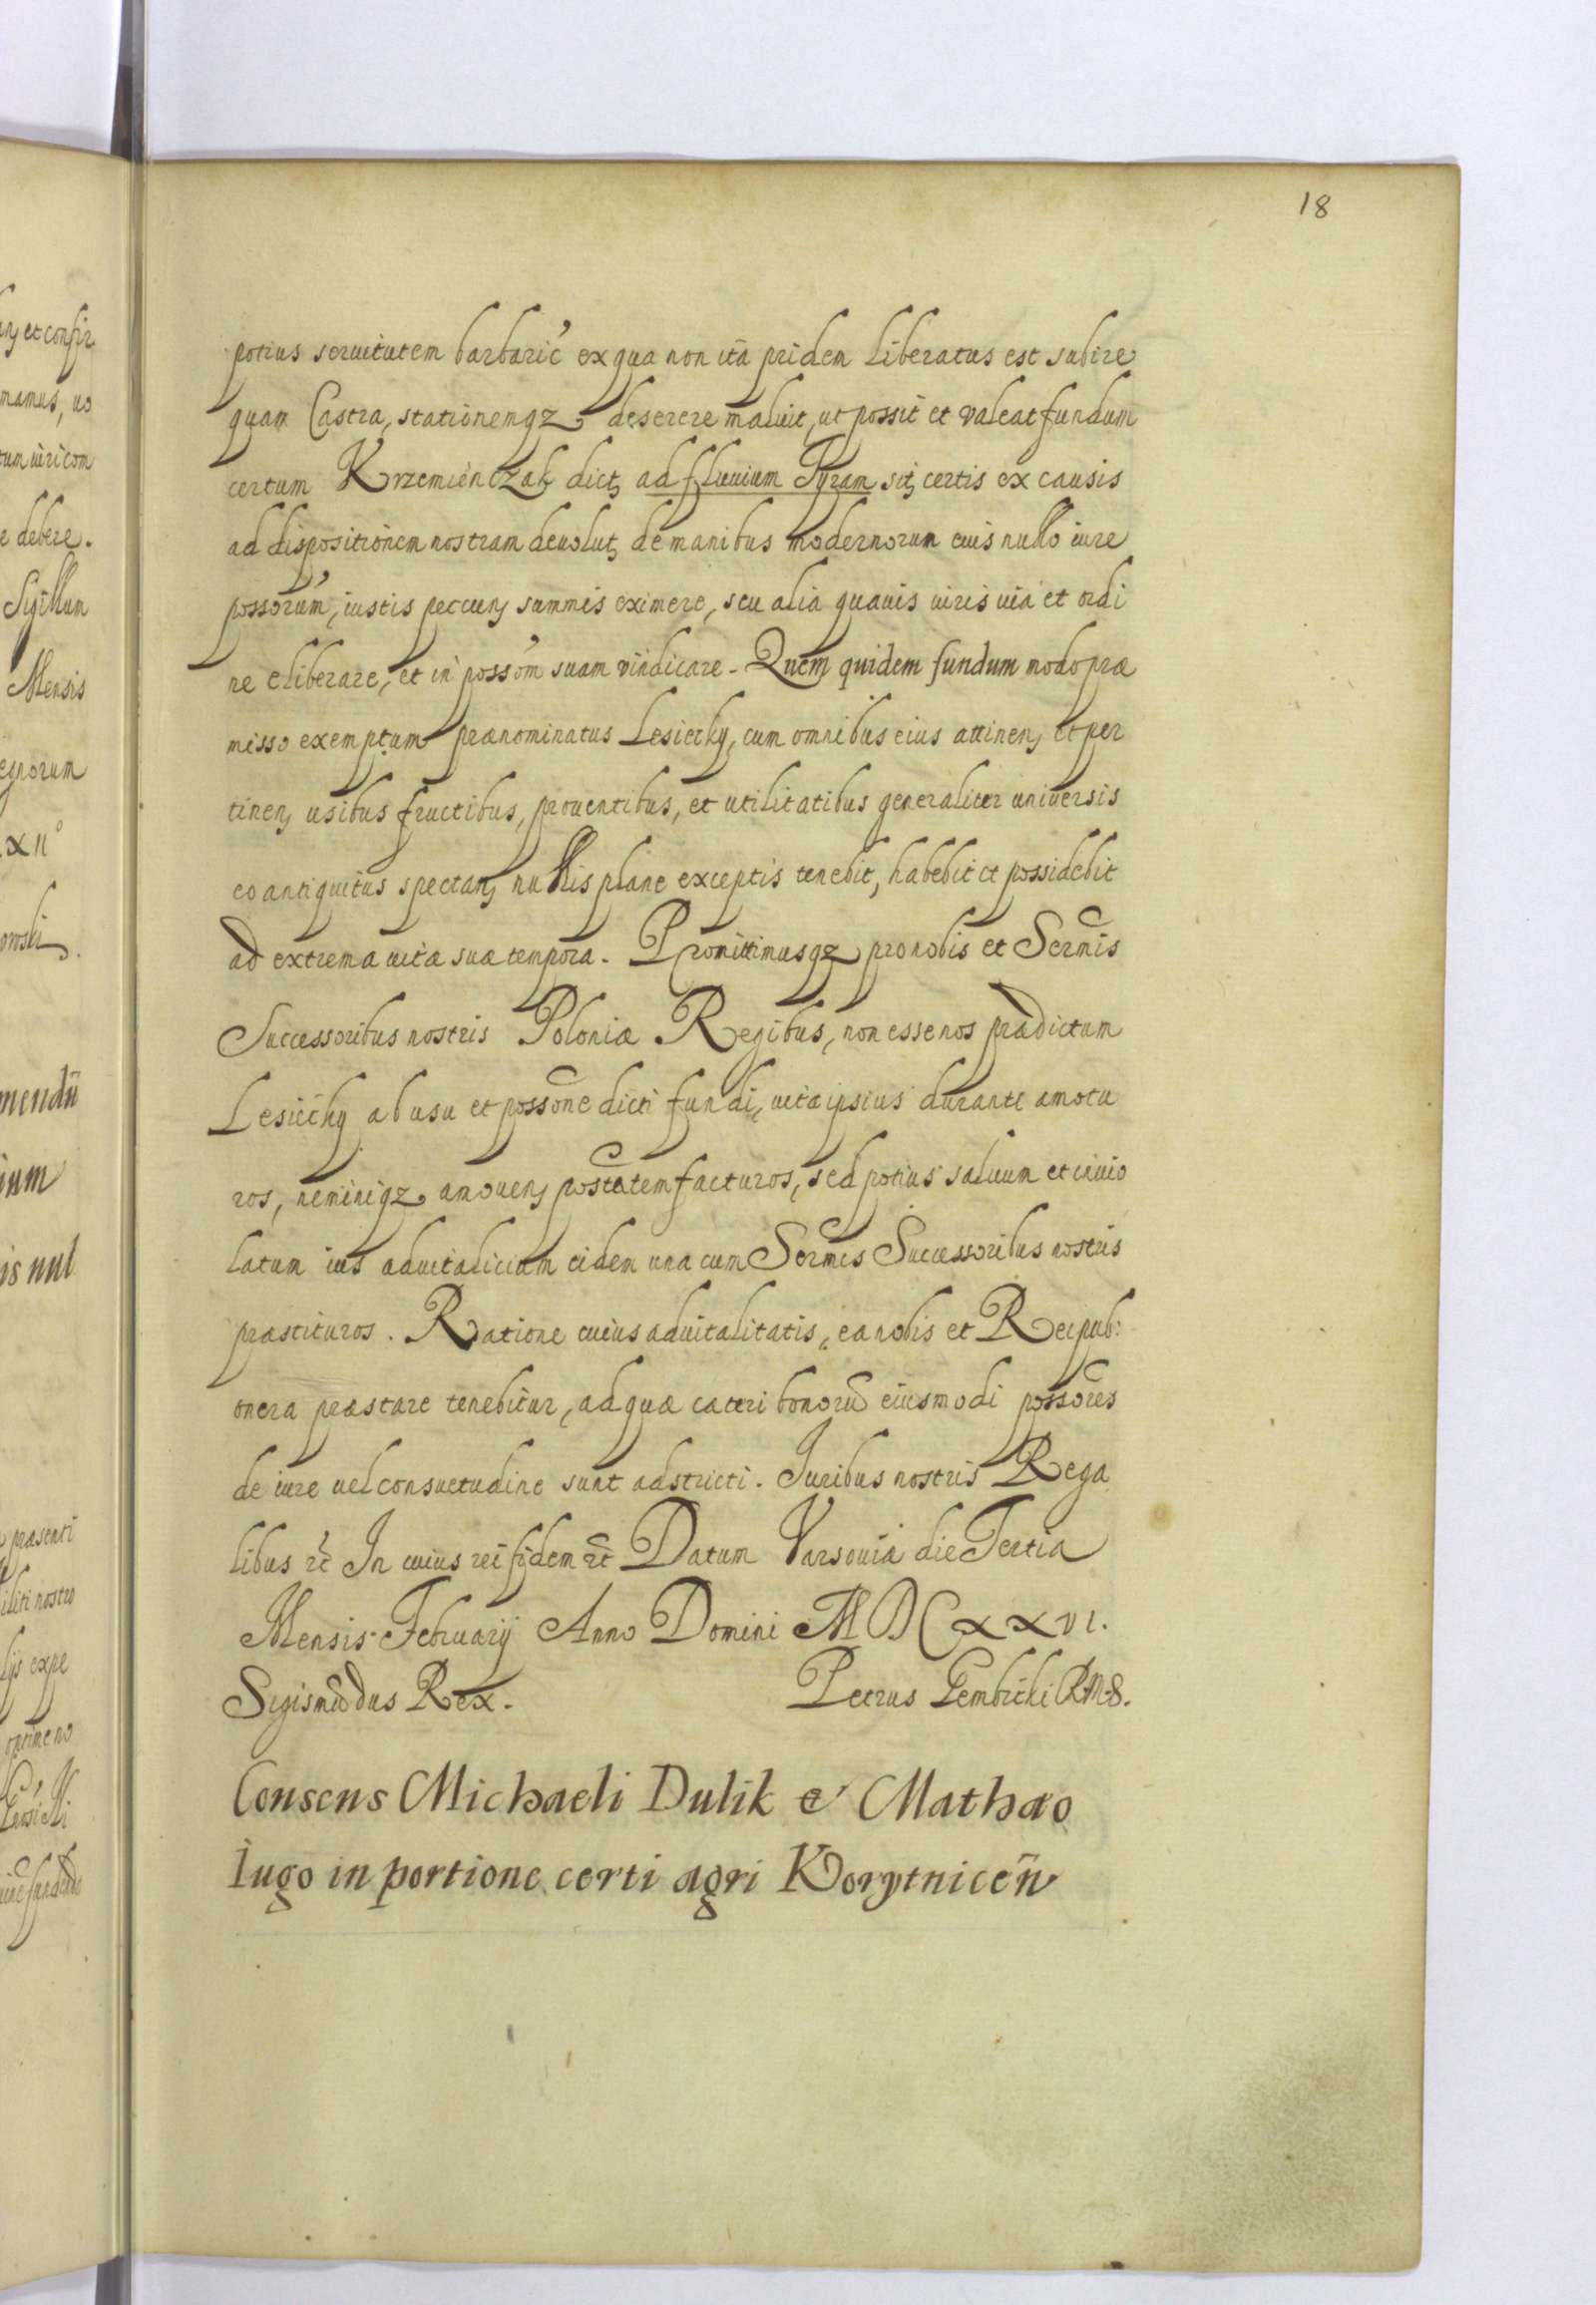 18
potius seruitutem barbaric ex qua non ita pridem liberatus est subire
quam Castra, stationemqz deserere maluit, ut possit et valeat fundum
certum Krzemienczak dict, ad fluuium Pyram sit, certis ex causis
ad dispositionem nostram deuolut, de manibus modernorum eius nullo iure
possorum, iustis peccun, summis eximere, seu alia quauis iuris uia et ordi
ne eliberare, et in possom suam vindicare - Quem quidem fundum modo præ
misso exemptum prænominatus Lesiecky, cum omnibus eius attinen, et per
tinen, usibus fructibus, prouentibus, et utilitatibus generaliter universis
eo antiquitus spectan, nullis plane exceptis tenebit, habebit et possidebit
ad extrema uitæ suæ tempora. Promittimusqz pro nobis et Sermis
Successoribus nostris Poloniæ Regibus, non esse nos prædictum
Lesiecky ab usu et possone dicti fundi, uita ipsius durante amotu
ros, neminiqz amouen, postatem facturos, sed potius saluum et inuio
latum ius aduitalicium eidem una cum Sermis Successoribus nostris
præstituros. Ratione cuius aduitalitatis, ea nobis et Reipub:
onera præstare tenebitur, ad quæ cæteri bonorū eiusmodi possores
de iure uel consuetudine sunt adstricti. Iuribus nostris Rega
libus etc In cuius rei fidem etc Datum Varsouiæ die Tertia
Mensis Februarij Anno Domini MDCXXVI.
Sigismūdus Rex. Petrus Gembicki R.M.S.
Consens Michaeli Dulik et Mathæo
Iugo in portione certi agri Korytnicēn